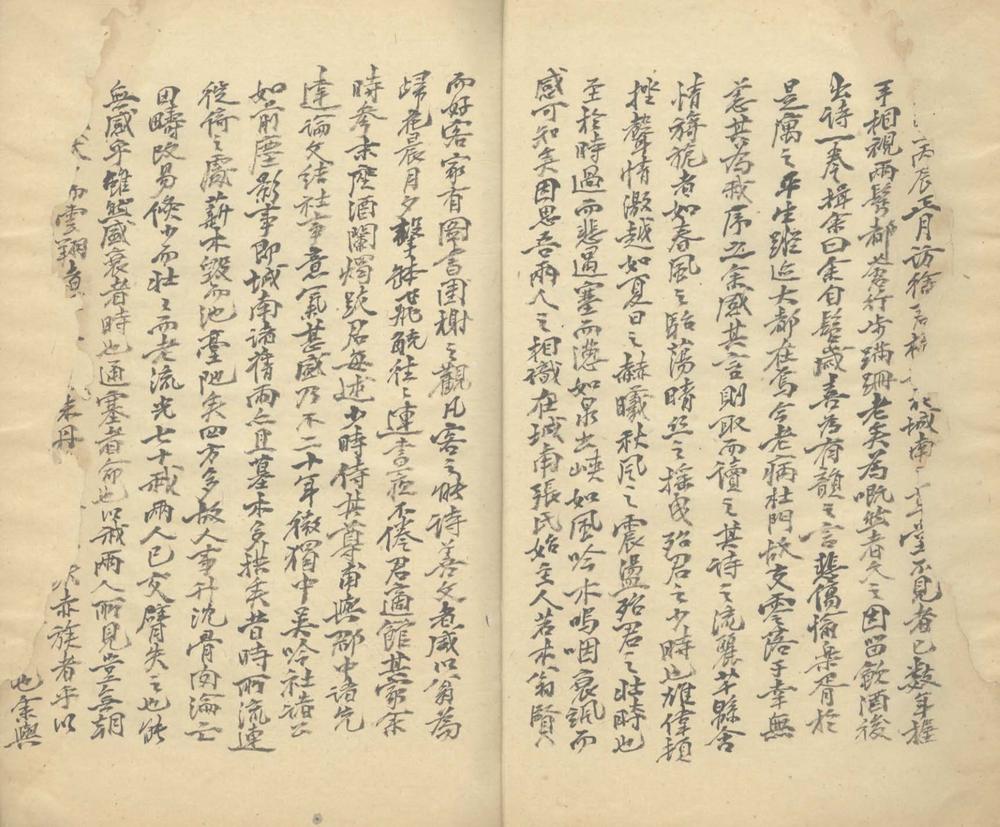 丙辰三月訪徐君於城南草堂不見者已數年握
手相視兩鬢都蒼行步蹣跚老矣為嘅然者久之因留飲酒後
出詩一卷揖余曰余自髫歲喜為有韻之言悲傷愉樂胥於
是寓之平生蹤迹大都在焉今老病杜門故交零落子幸無
恙其為我序之余感其言則取而讀之其詩之流麗芊緜含
情旖旎者如春風之駘蕩晴絲之搖曳殆君之少時也雄偉頓
挫聲情激越如夏日之赫曦秋風之震盪殆君之壯時也
至於時過而悲遇塞而懣如泉出峽如風吟木嗚咽哀諷而
感可知矣因思吾兩人之相識在城南張氏始主人若木翁賢
而好客家有圖書園榭之觀凡客之能詩善文者咸以翁為
歸花晨月夕擊缽飛觥往往連晝夜不倦君適館其家余
時參末座酒闌燭跋君每述少時侍其尊甫與郡中諸先
達論文結社事意氣甚盛乃不二十年徵獨中吳吟社諸公
如前塵影事即城南諸舊雨亦且墓木多拱矣昔時所流連
徙倚之處薪木毀而池臺阤矣四方多故人事升沈骨肉淪亡
田疇改易倏少而壯壯而老流光七十我兩人已交臂失之也能
無感乎雖然盛衰者時也通塞者命也以我兩人所見豈無朝
雲翔 朱丹 亦族者乎以
也余與